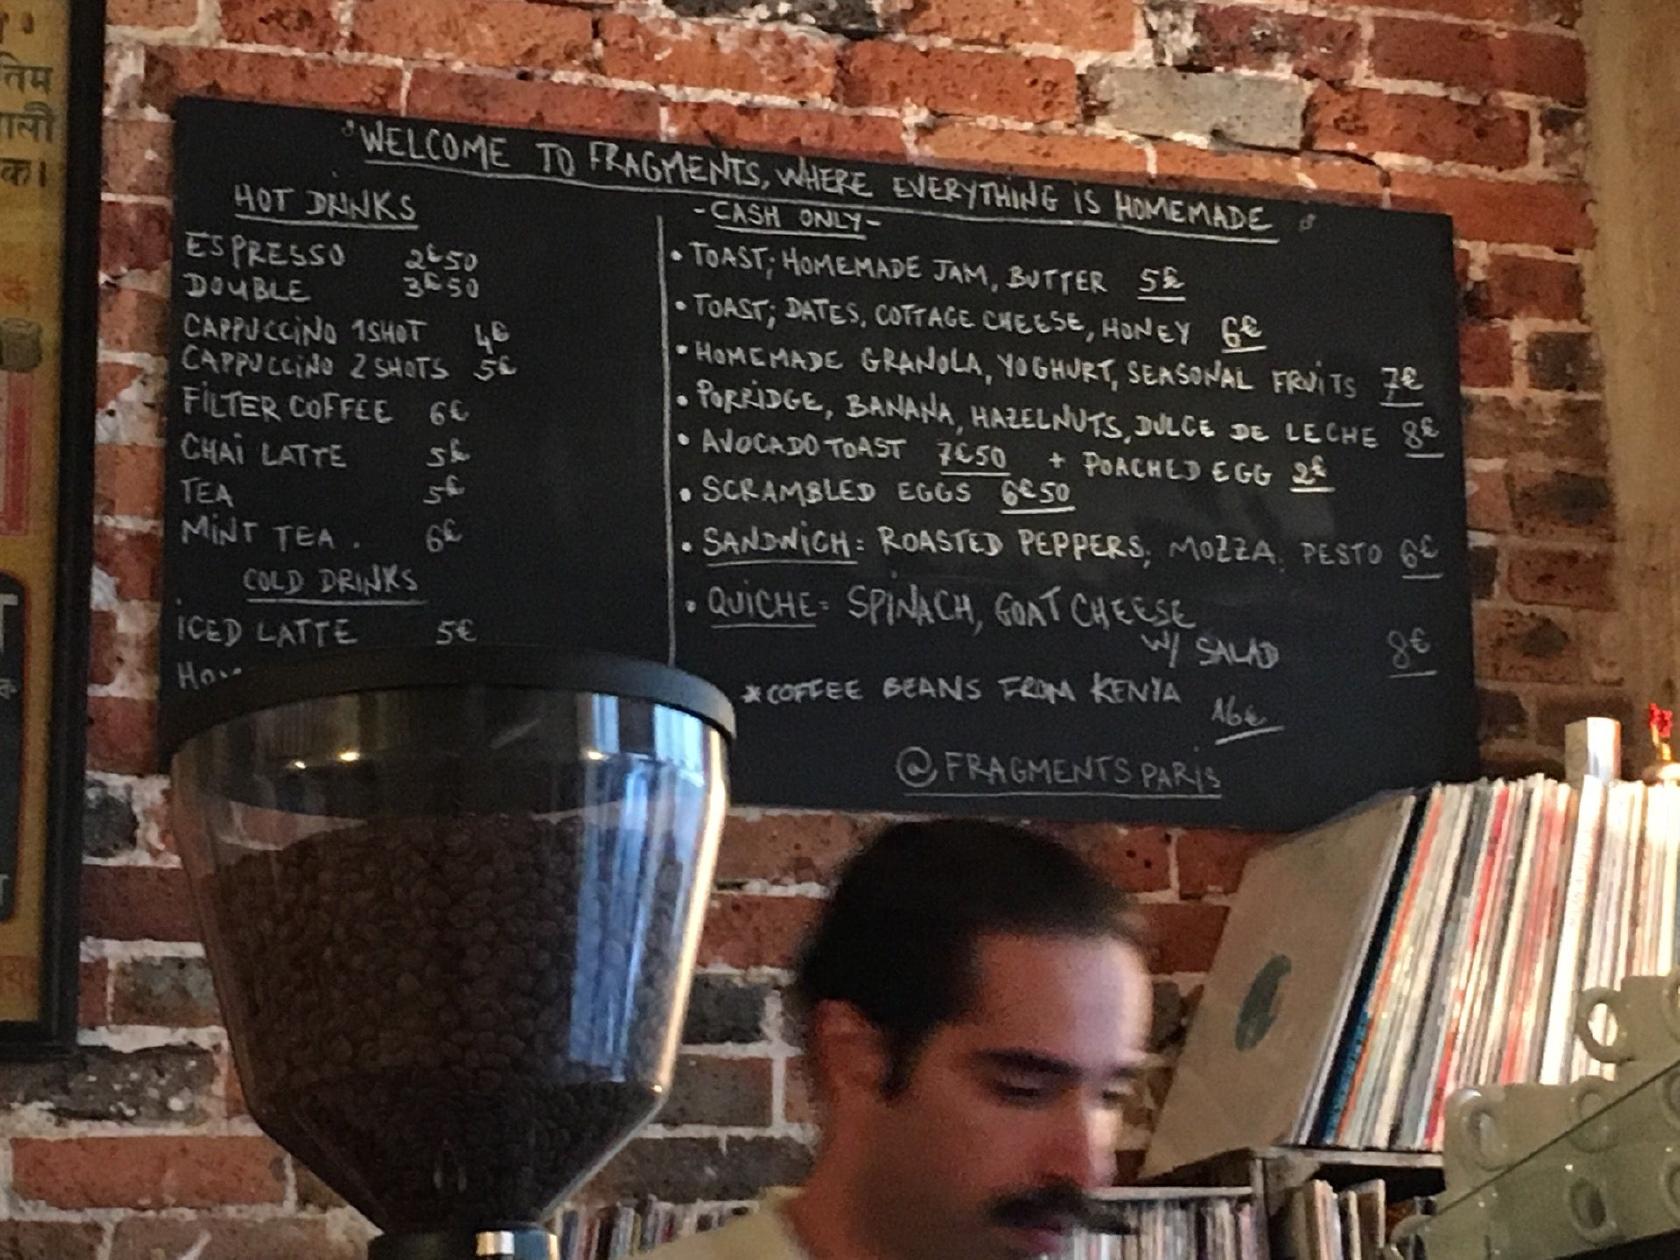 WELCOME TO FRAGMENTS, WHERE EVERYTHING IS HOMEMADE
HOT DRINKS
ESPRESSO 2€50
DOUBLE 3€50
CAPPUCCINO 1SHOT 4€
CAPPUCCINO 2 SHOTS 5€
FILTER COFFEE 6€
CHAI LATTE 5€
TEA 5€
MINT TEA . 6€
COLD DRINKS
ICED LATTE 5€
-CASH ONLY-
• TOAST; HOMEMADE JAM, BUTTER 5€
• TOAST; DATES, COTTAGE CHEESE, HONEY 6€
• HOMEMADE GRANOLA, YOGHURT, SEASONAL FRUITS 7€
• PORRIDGE, BANANA, HAZELNUTS, DULCE DE LECHE 8€
• AVOCADO TOAST 7€50 + POACHED EGG 2€
• SCRAMBLED EGGS 6€50
• SANDWICH: ROASTED PEPPERS, MOZZA, PESTO 6€
• QUICHE: SPINACH, GOAT CHEESE
W/ SALAD 8€
*COFFEE BEANS FROM KENYA
16€
@FRAGMENTSPARIS